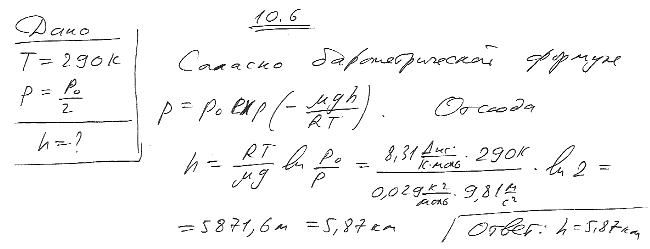 10.6
Дано
T = 290К
P = P₀/2
h = ?
Согласно барометрической формуле
p = p₀ exp(-μgh/RT). Отсюда
h = RT/μg ln P₀/P = 8,31 Дж/К·моль · 290К / 0,029 кг/моль · 9,81 м/с² · ln 2 =
= 5871,6 м = 5,87 км Ответ: h = 5,87 км